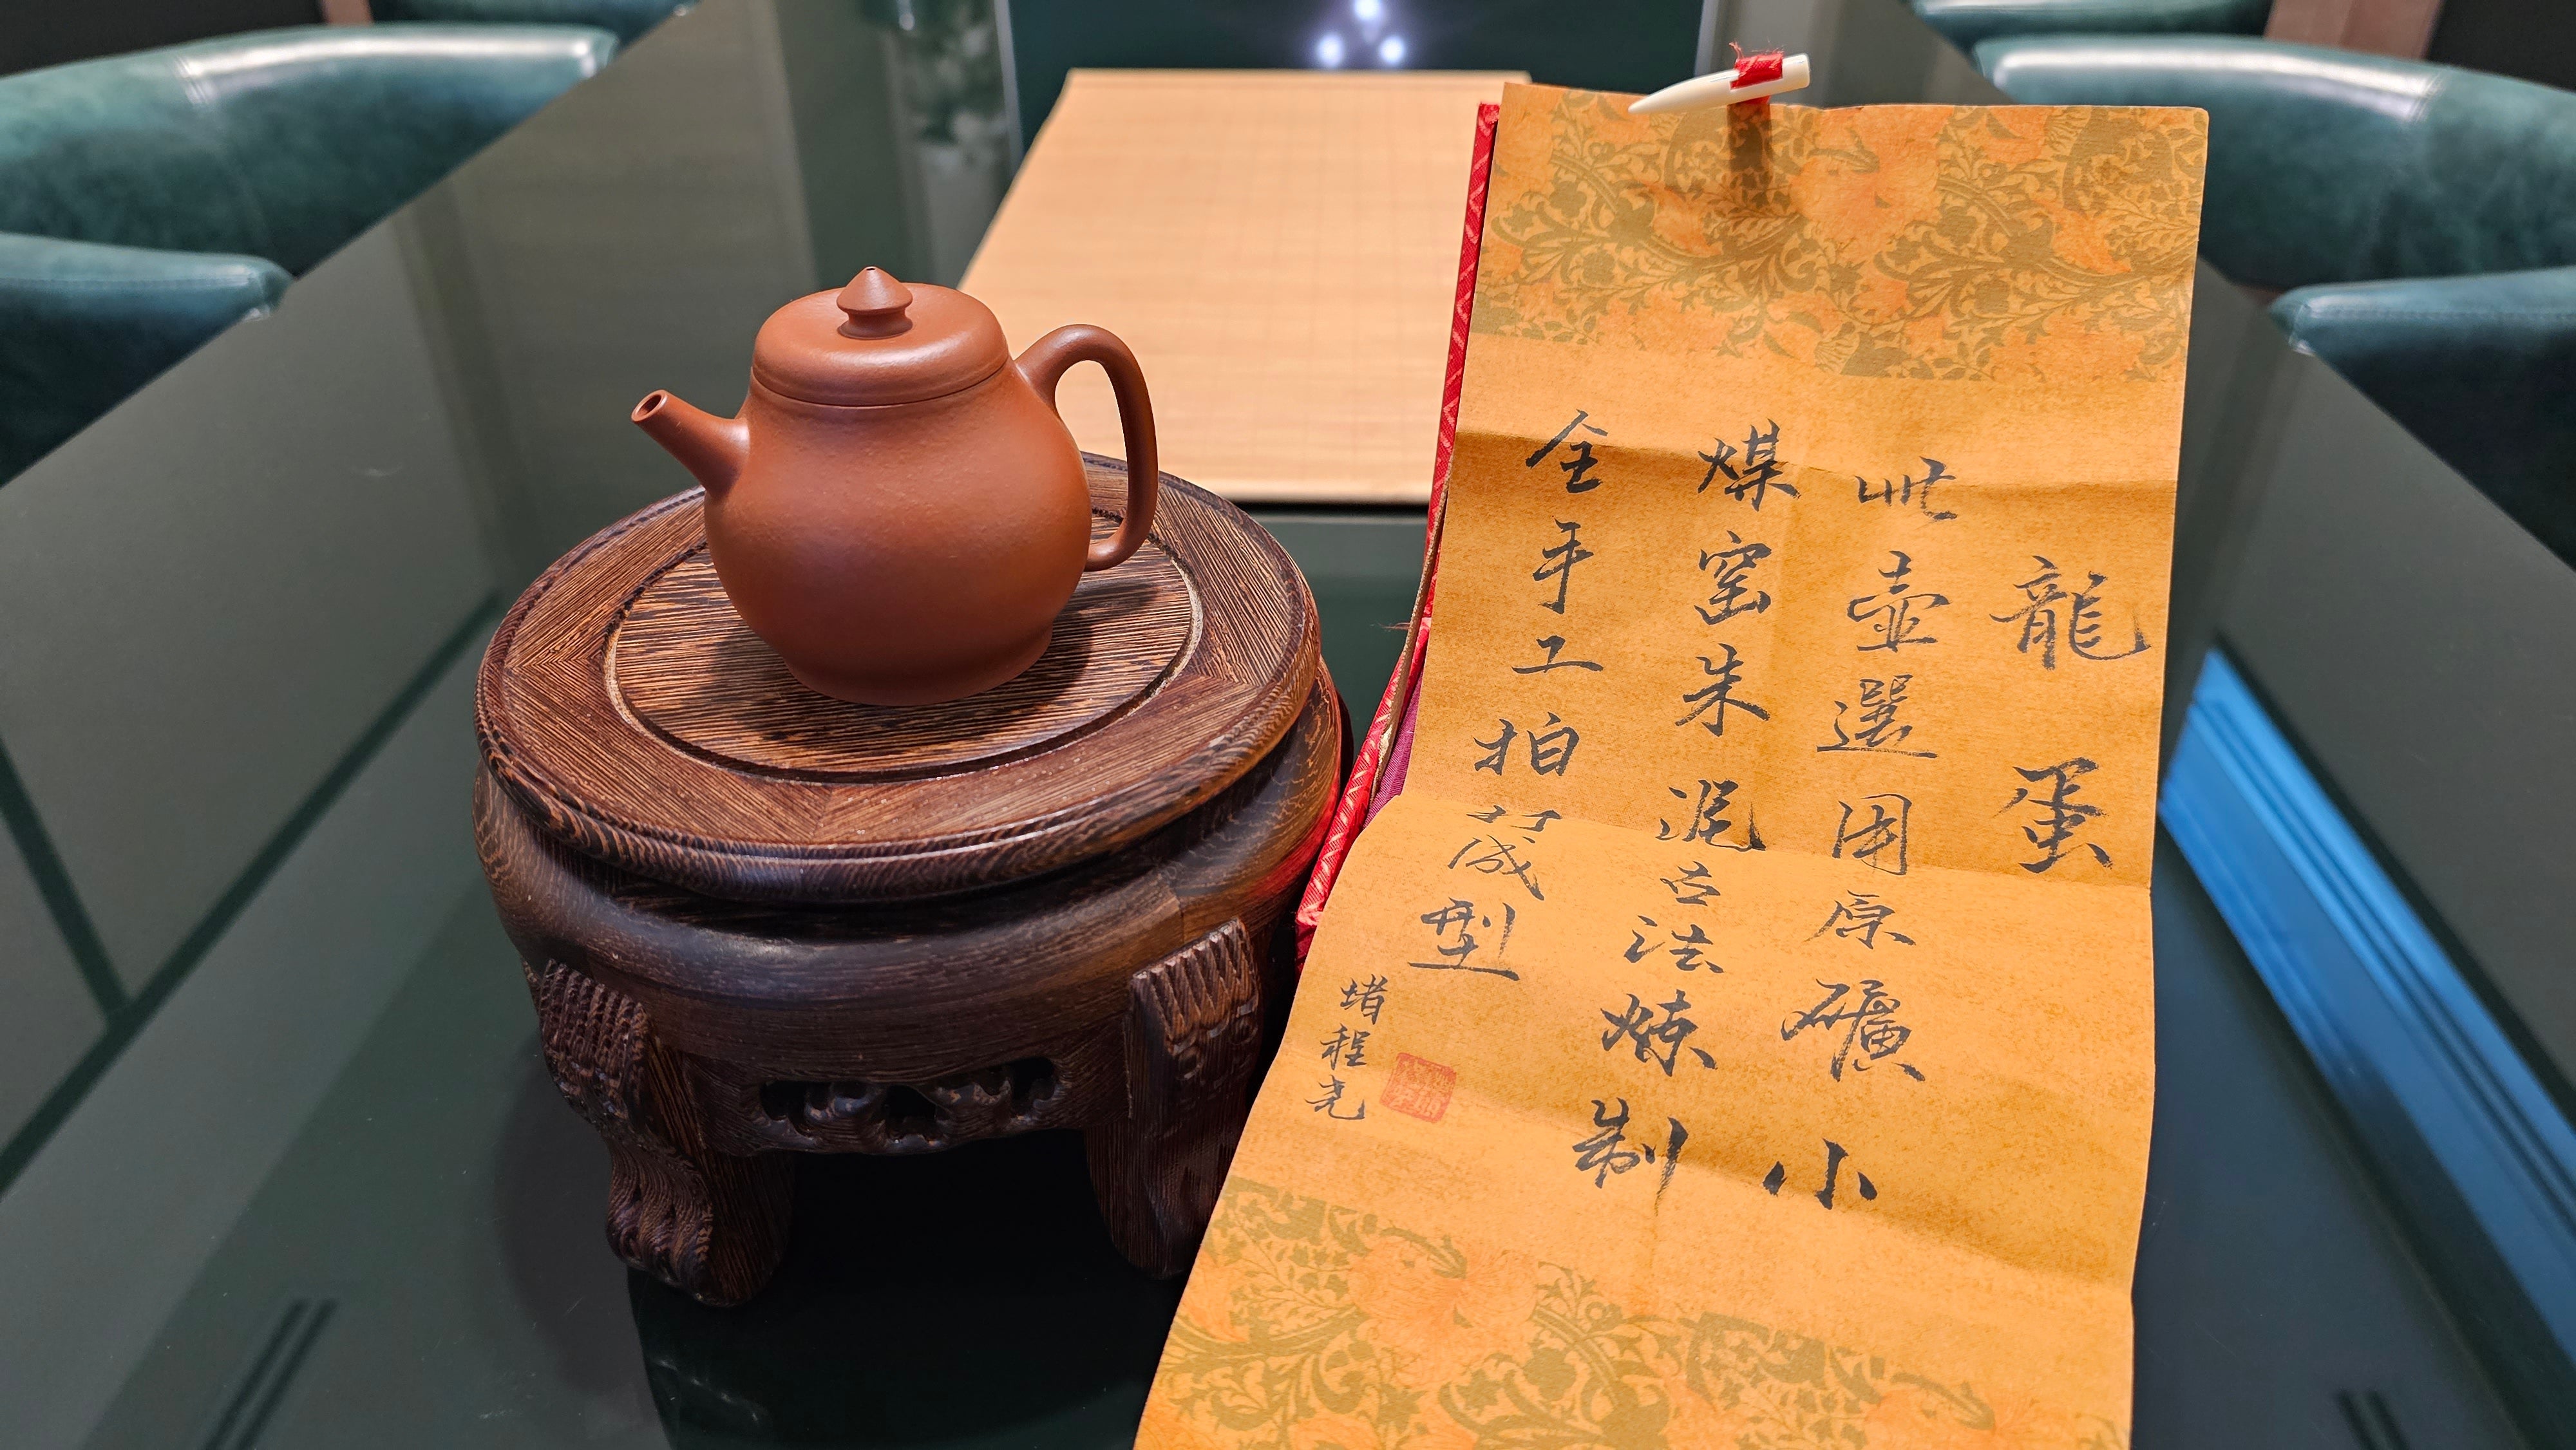 龍蛋
此壺選用原礦小
煤窑朱泥古法煉制
全手工拍筬型
堵程尧